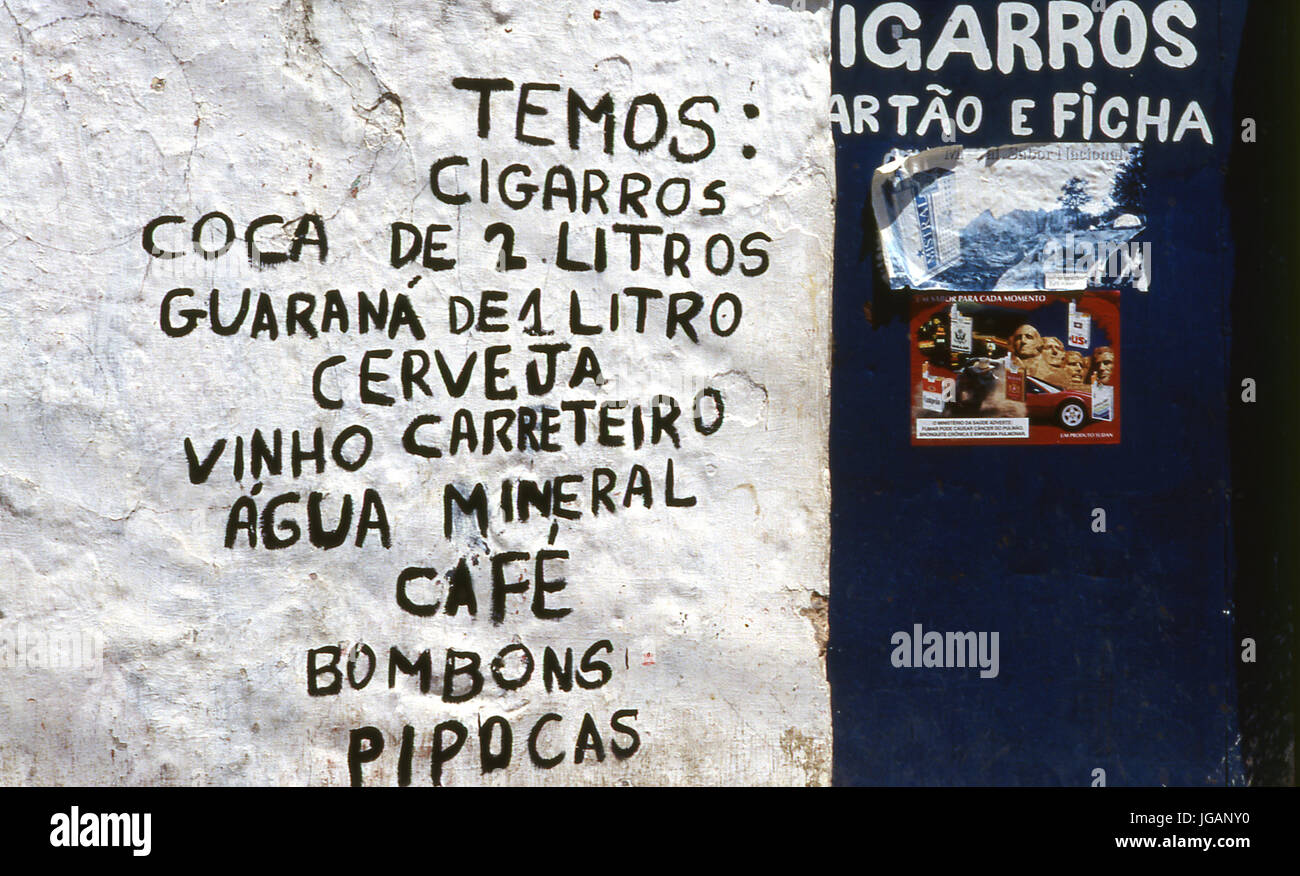 TEMOS:
CIGARROS
COCA DE 2 LITROS
GUARANÁ DE 1 LITRO
CERVEJA
VINHO CARRETEIRO
ÁGUA MINERAL
CAFÉ
BOMBONS
PIPOCAS
IGARROS
ARTÃO E FICHA
Sabor Nacional
UM SABOR PARA CADA MOMENTO
US
O MINISTÉRIO DA SAÚDE ADVERTE:
FUMAR PODE CAUSAR CÂNCER DO PULMÃO,
BRONQUITE CRÔNICA E ENFISEMA PULMONAR.
UM PRODUTO SUDAN
alamy
a
alamy stock photo
JGANY0
www.alamy.com